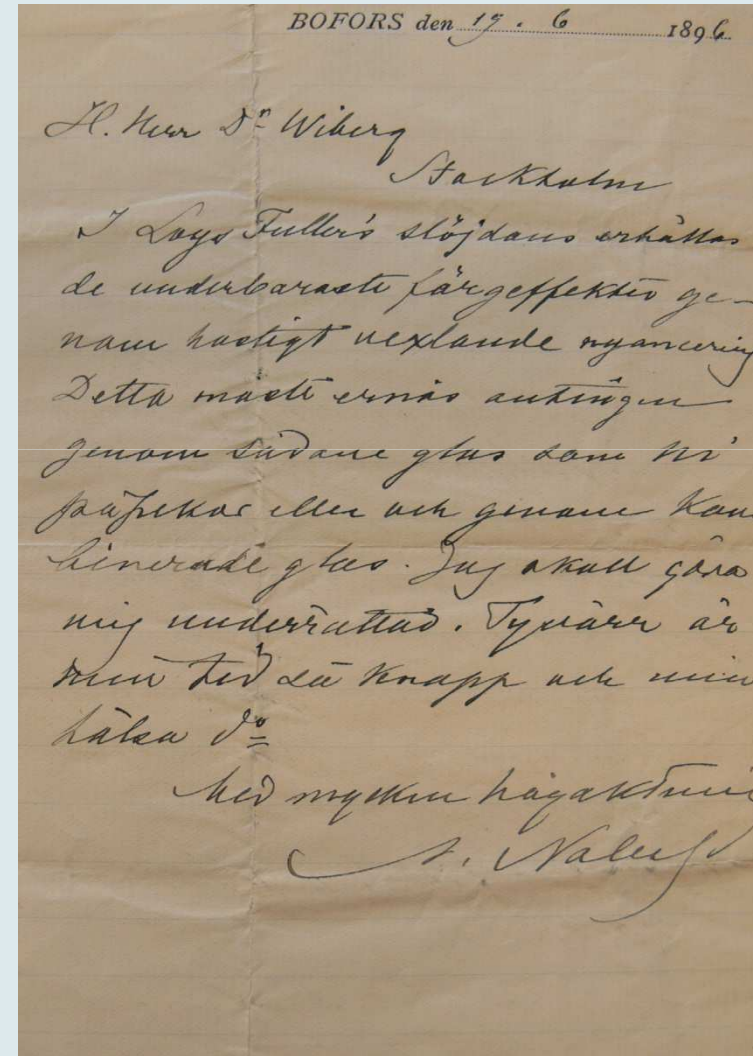 BOFORS den 17. 6 1896
H. Herr Dr Wiberg
Stockholm
I Loys Fuller's slöjdans erhållas
de underbaraste färgeffekter ge-
nom hastigt vexlande nyancering
Detta måste ernås antingen
genom sådane glas som Ni
påpekar eller och genom kom
binerade glas. Jag skall göra
mig underrättad. Tyvärr är
min tid så knapp och min
hälsa do
Med mycken högaktnin
A. Nobel